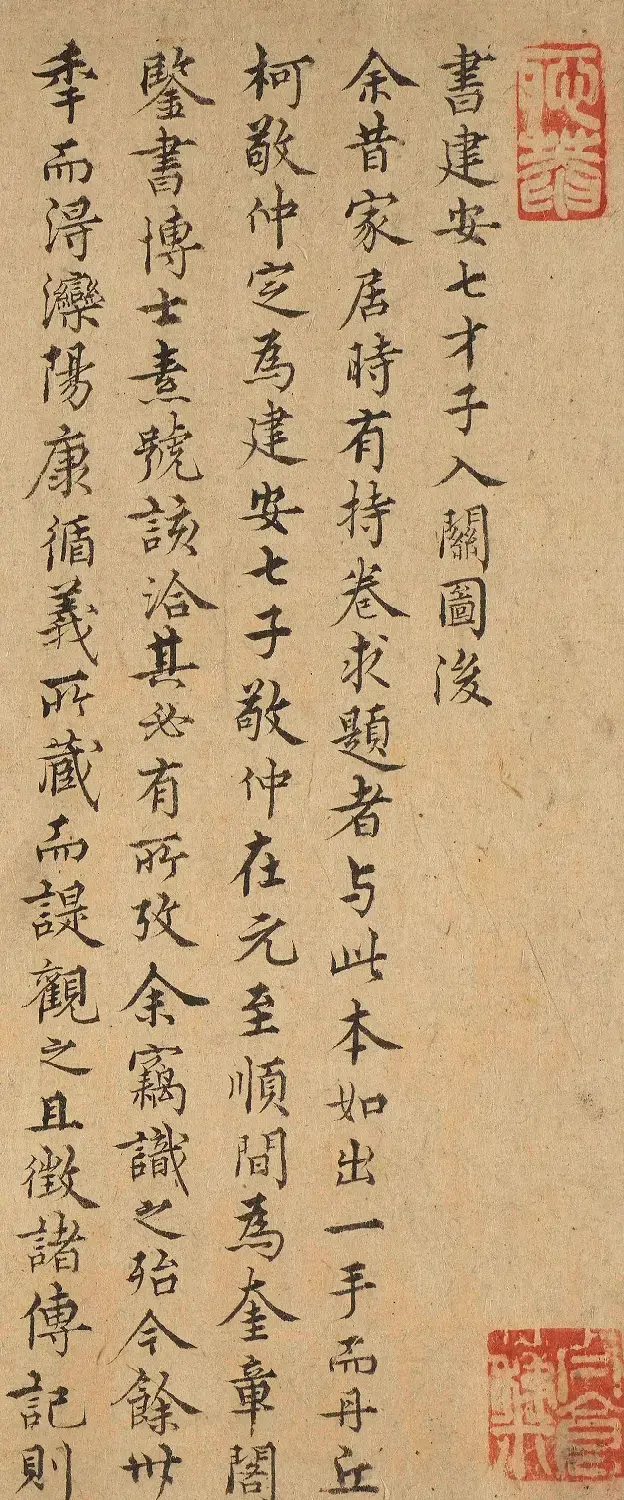 書建安七才子入關圖後
余昔家居時有持卷求題者与此本如出一手而丹丘
柯敬仲定為建安七子敬仲在元至順間為奎章閣
鑒書博士素號該洽其必有所攷余竊識之殆今餘卅
秊而得灤陽康循義所藏而諟觀之且徵諸傳記則